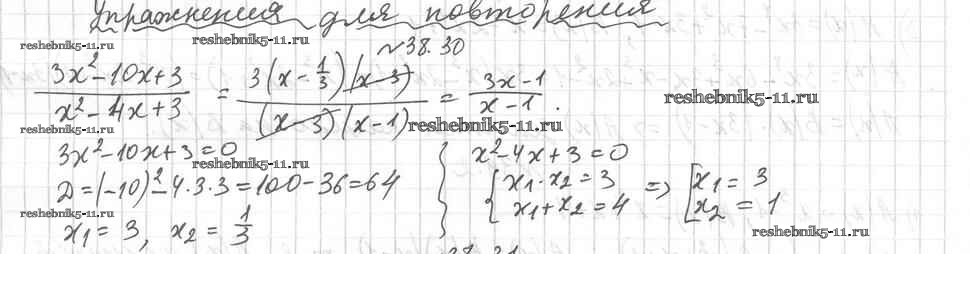 Упражнения для повторения
reshebnik5-11.ru reshebnik5-11.ru
№38.30
(3x²-10x+3)/(x²-4x+3) = (3(x-1/3)(x-3))/((x-3)(x-1)) = (3x-1)/(x-1).
reshebnik5-11.ru
reshebnik5-11.ru reshebnik5-11.ru
3x²-10x+3=0
x²-4x+3=0
reshebnik5-11.ru
D=(-10)²-4·3·3=100-36=64
{ x₁·x₂=3 => [ x₁=3
x₁+x₂=4 x₂=1
reshebnik5-11.ru
x₁=3, x₂=1/3
reshebnik5-11.ru